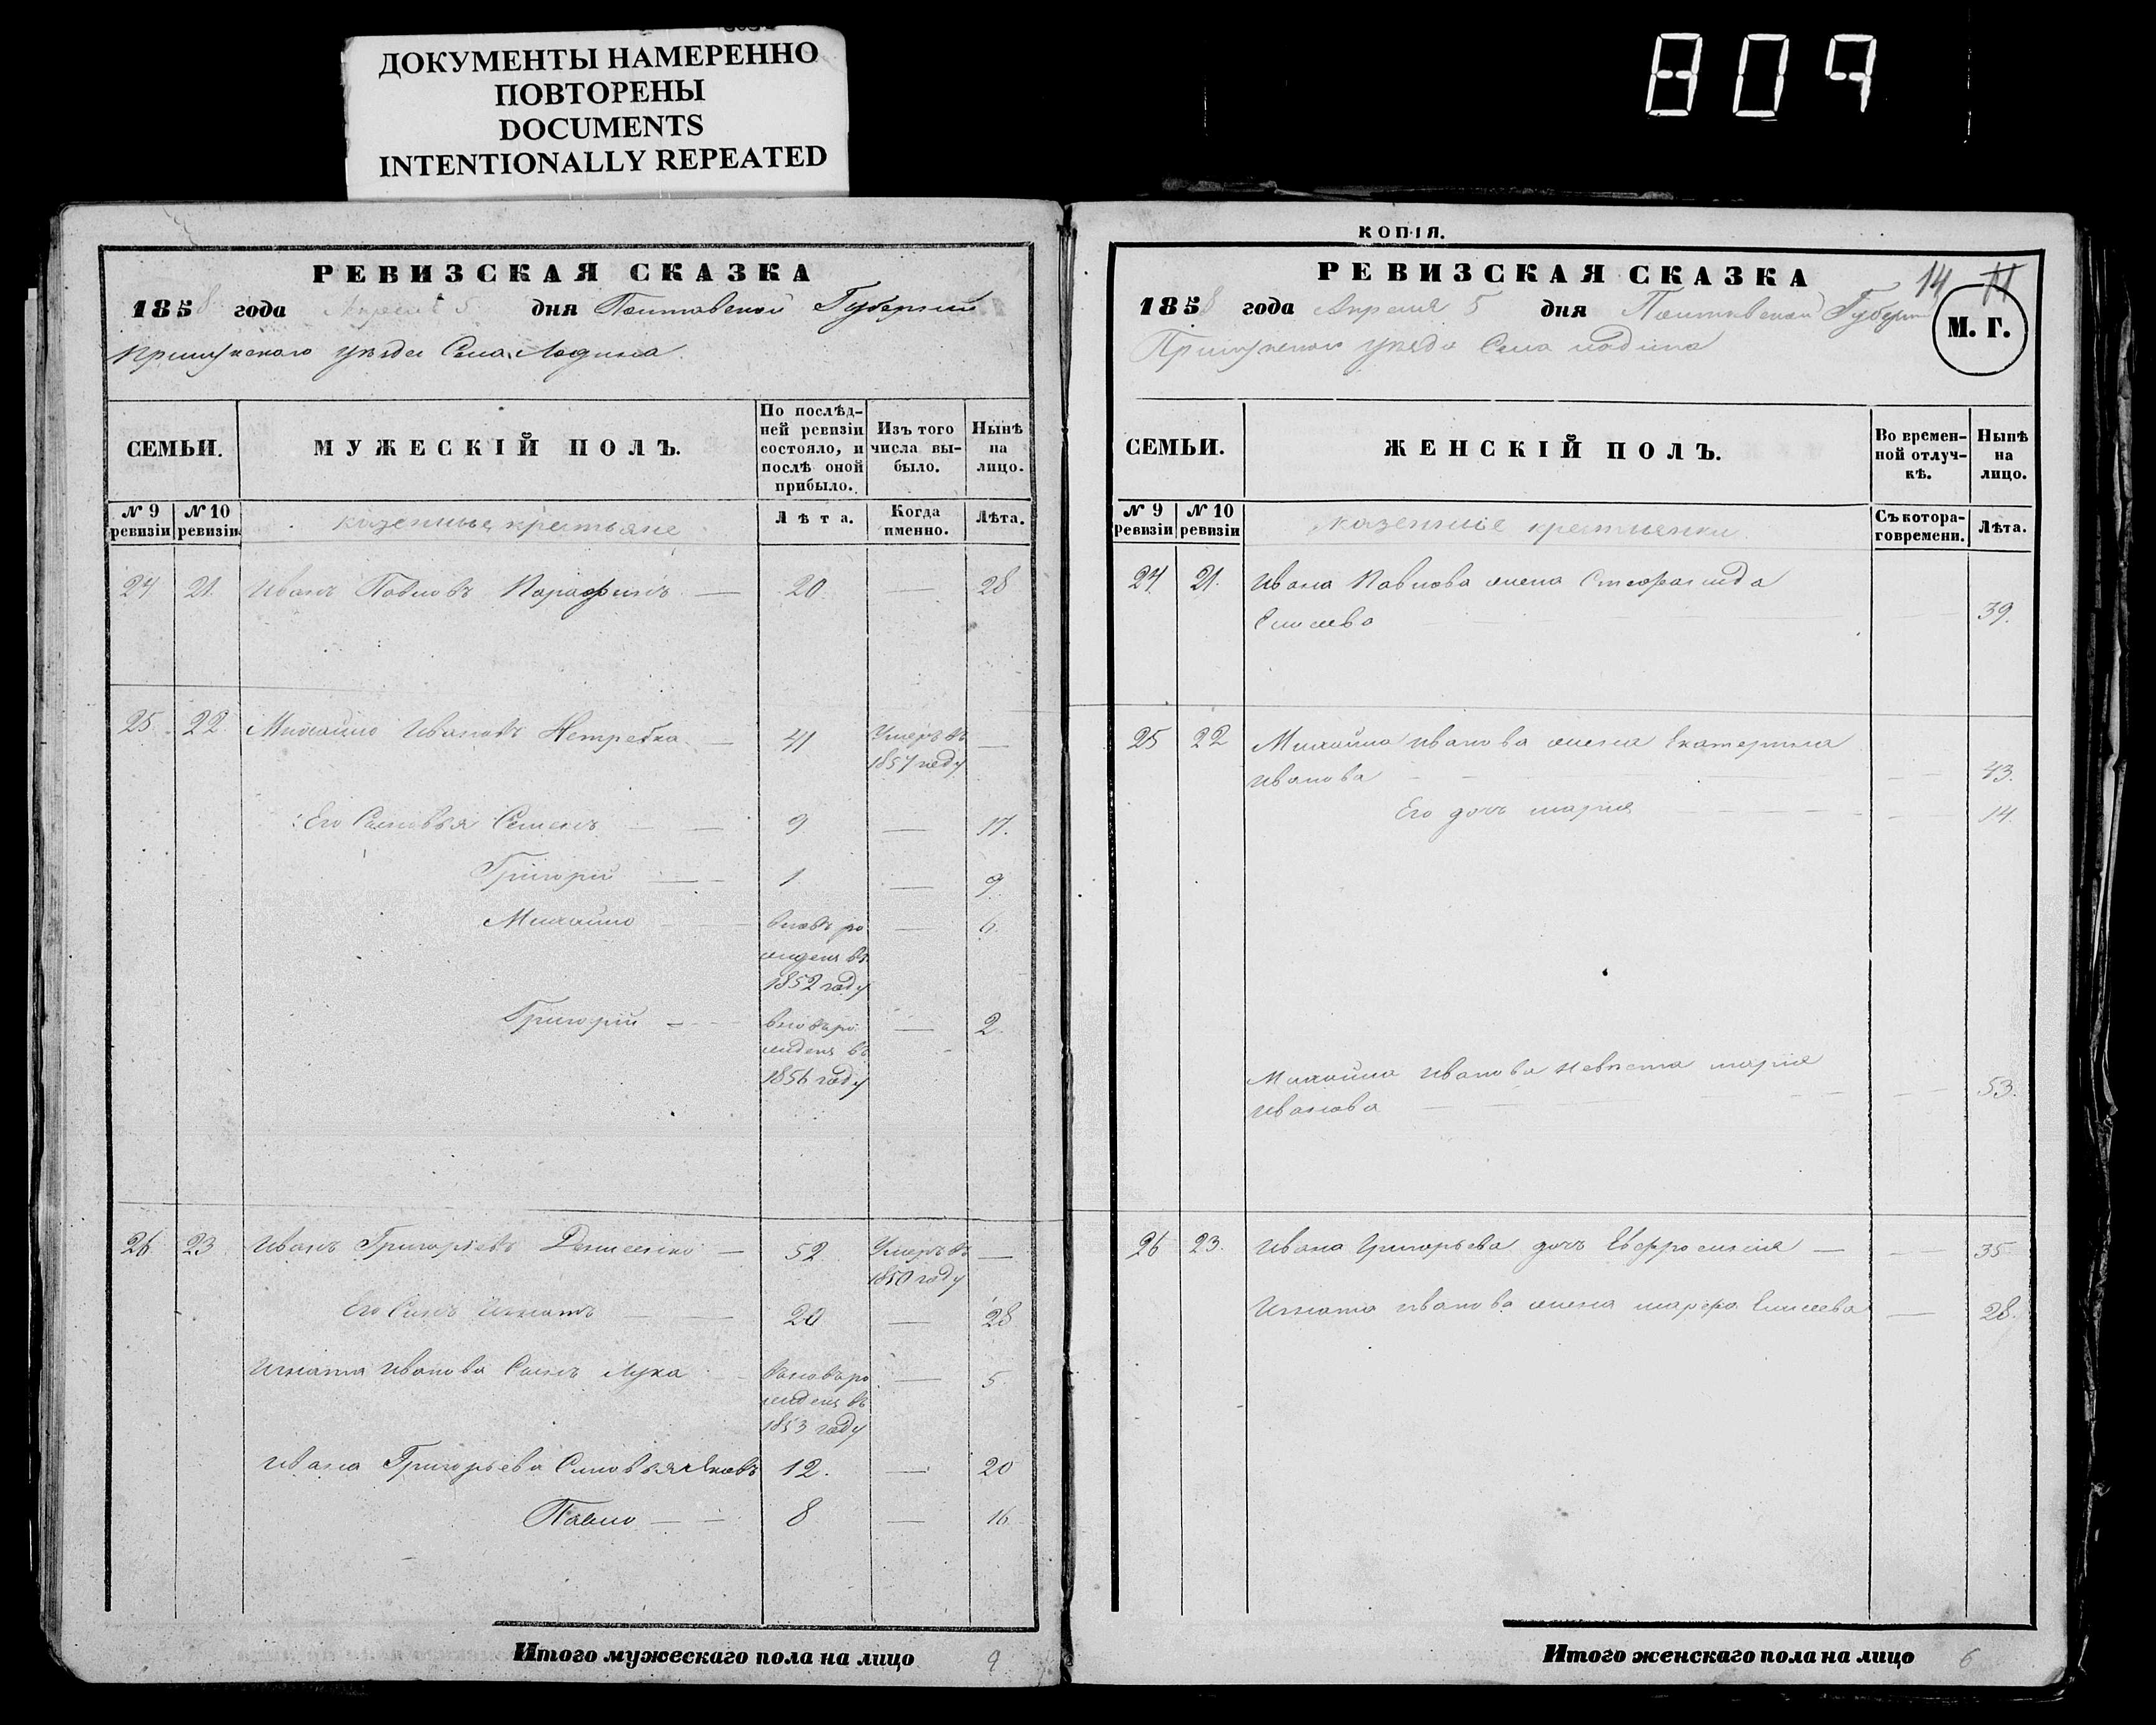 ДОКУМЕНТЫ НАМЕРЕННО
ПОВТОРЕНЫ
DOCUMENTS
INTENTIONALLY REPEATED
809
РЕВИЗСКАЯ СКАЗКА
1858 года Апреля 5 дня Полтавской Губерніи
Прилуцкаго уѣзда Села Ладина
СЕМЬИ.
МУЖЕСКІЙ ПОЛЪ.
По послѣд-
ней ревизіи
состояло, и
послѣ оной
прибыло.
Изъ того
числа вы-
было.
Нынѣ
на
лицо.
№ 9
ревизіи
№ 10
ревизіи
казенные крестьяне
Лѣта.
Когда
именно.
Лѣта.
24 21. Иванъ Павловъ 20 — 28
25 22 Михайло Ивановъ Нетребка — 41 Умеръ въ —
1857 году
Его Сыновья Семенъ — — 9 — 17.
Григорій — — 1 — 9
Михайло — — вновь ро — 6
жденъ въ
1852 году
Григорій — — вновь ро — 2
жденъ въ
1856 году
26 23 Иванъ Григорьевъ — 52 Умеръ въ —
1850 году
Его Сынъ Игнатъ — — 20 — 28
Игната Иванова Сынъ Лука — вновь ро — 5
жденъ въ
1853 году
Ивана Григорьева Сыновья Яковъ 12. — 20
Павло — — 8 — 16
Итого мужескаго пола на лицо 9
КОПІЯ.
РЕВИЗСКАЯ СКАЗКА
14 11
1858 года Апреля 5 дня Полтавской Губерн
М. Г.
Прилуцкаго уѣзда Села Ладина
СЕМЬИ.
ЖЕНСКІЙ ПОЛЪ.
Во времен-
ной отлуч-
кѣ.
Нынѣ
на
лицо.
№ 9
ревизіи
№ 10
ревизіи
казенные крестьянки
Съ котора-
го времени.
Лѣта.
24. 21. Ивана Павлова жена
Елисеева — — 39.
25 22 Михайла Иванова жена Екатерина
Иванова — — 43.
Его дочь марія — — 14.
Михайла Иванова невѣстка марія
Иванова — — 53.
26 23. Ивана Григорьева дочь Евфросинія — — 35
Игната Иванова жена марфа Елисеева — 28.
Итого женскаго пола на лицо 6